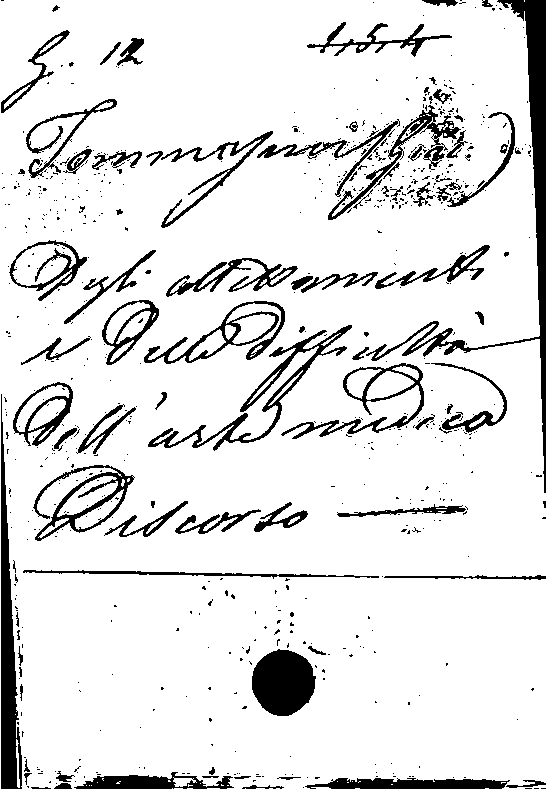 G. 12 1,5,4
Tommasini (Giac.)
Degli allettamenti
e delle difficultà
dell'arte medica
Discorso —